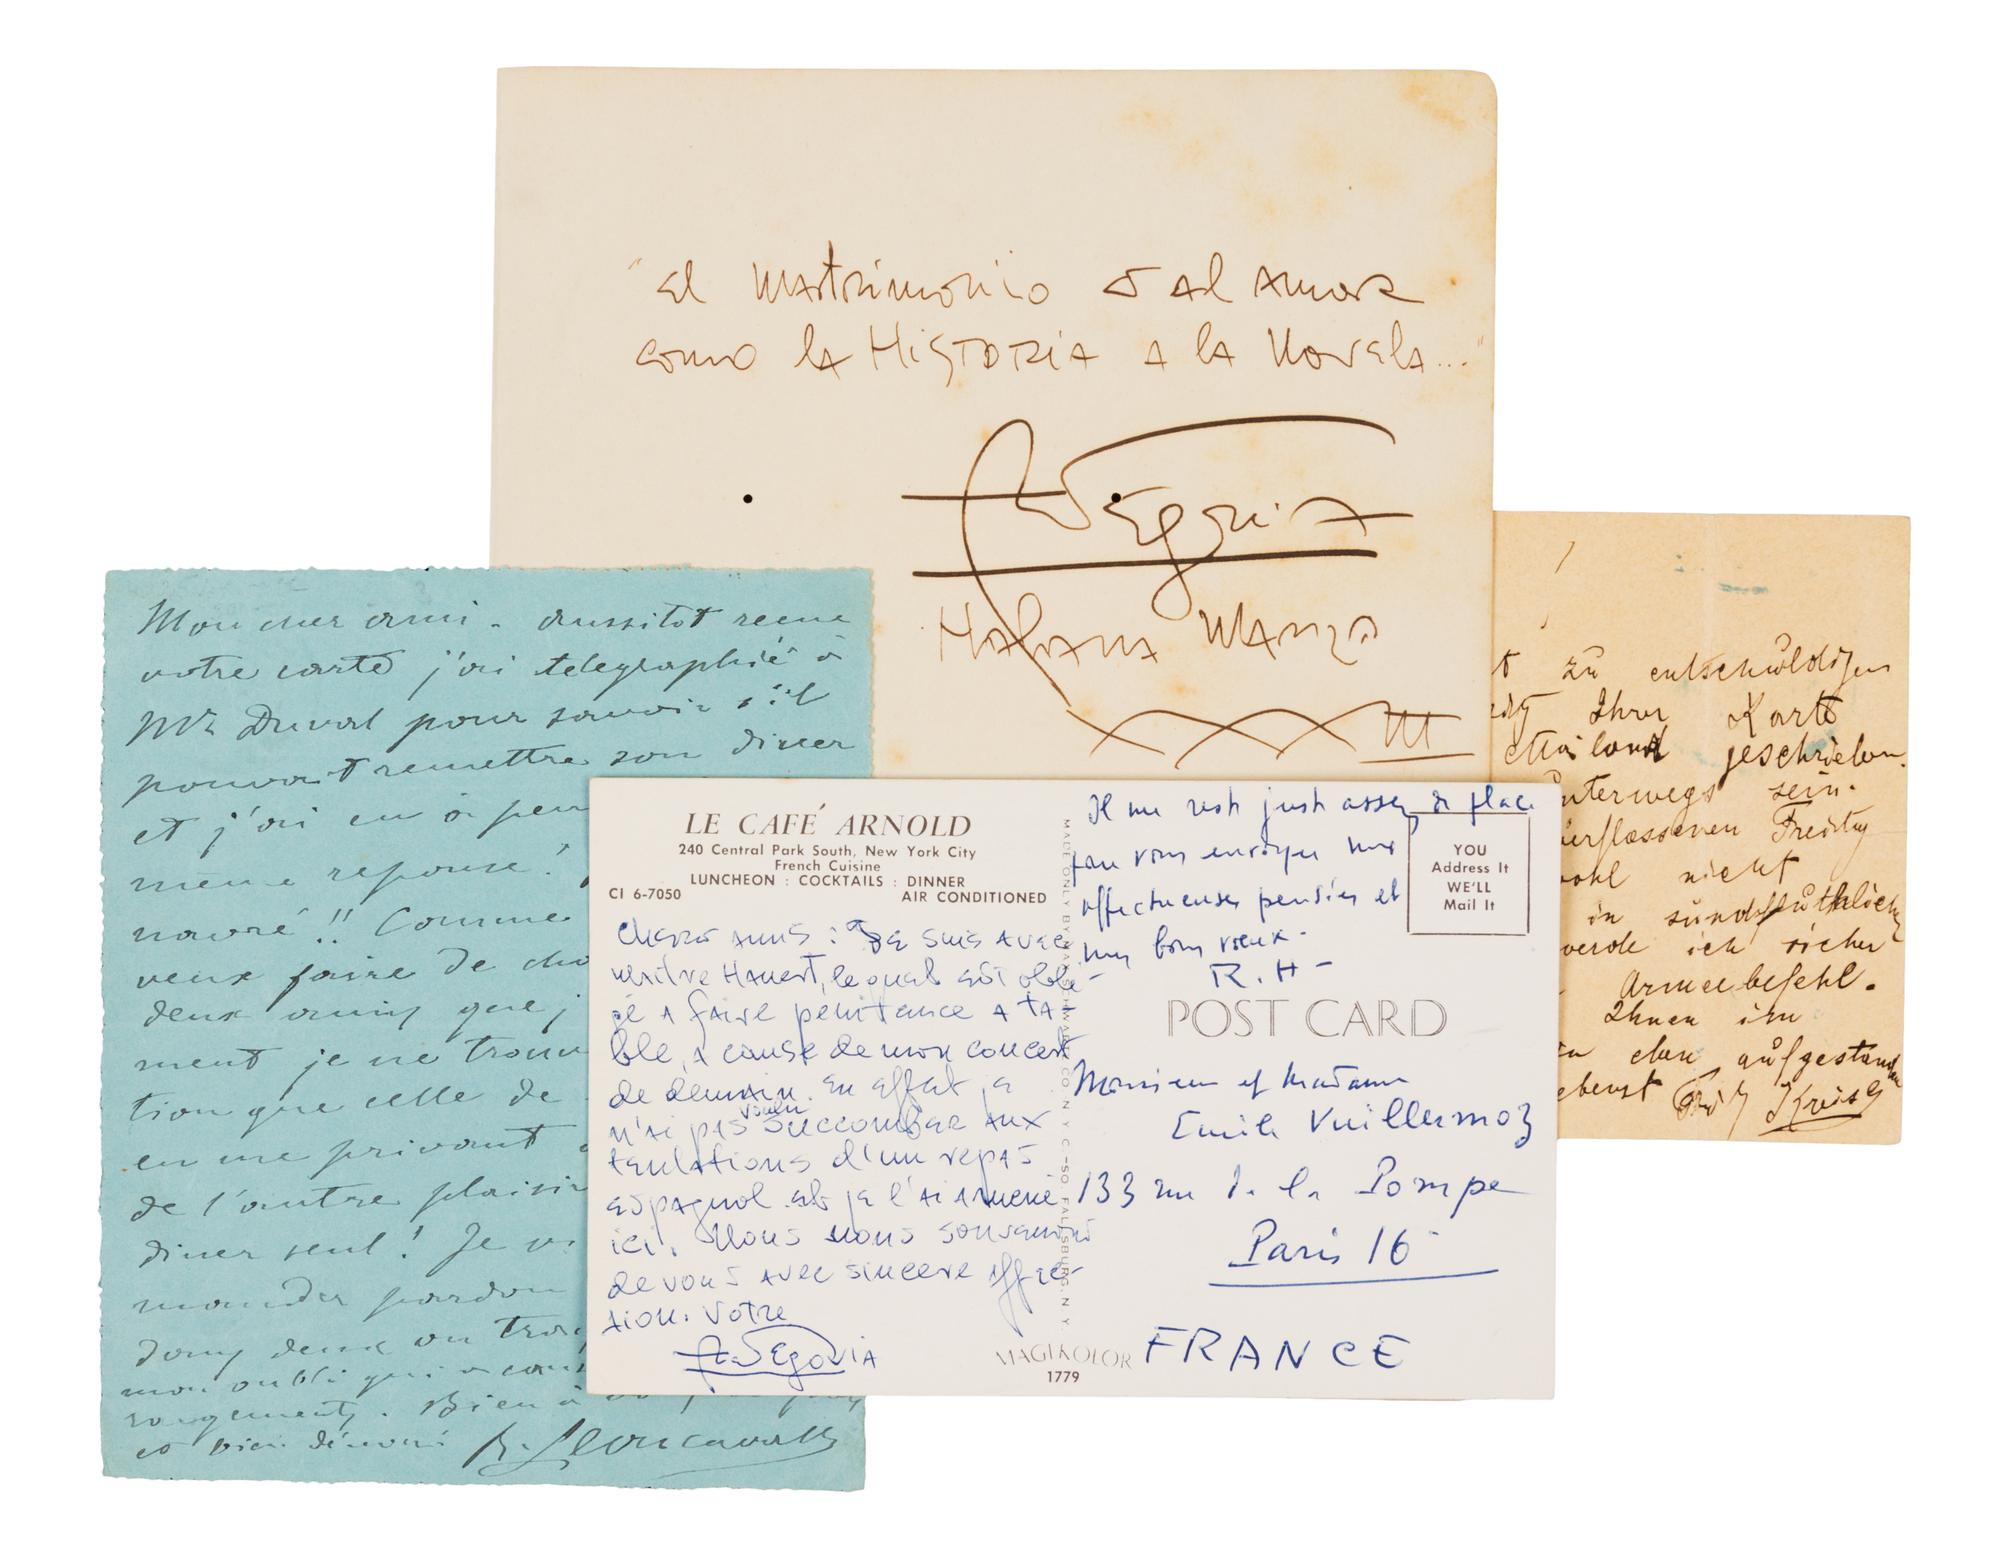 "El Matrimonio es al Amor
como la Historia a la Novela..."
A Segovia
Habana Marzo
XXXIII
Mon cher ami. aussitot recue
votre carte j'ai telegraphié à
Mr Duval pour savoir s'il
pouvait remettre son diner
et j'ai eu
meme reponse!
navré!! Comme
veux faire de
deux amis que j
ment je ne trouv
tion que celle de
en me privant
de l'autre plaisir
diner seul! Je v
mander pardon
deux ou trois
mon oubli qui a
rangements. Bien à
et bien dévoué R. Leoncavallo
LE CAFÉ ARNOLD
240 Central Park South, New York City
French Cuisine
LUNCHEON : COCKTAILS : DINNER
CI 6-7050 AIR CONDITIONED
Chers amis: Je suis avec
maitre Hauert, lequel est obli-
gé a faire penitance a ta-
ble, a cause de mon concert
de demain. En effet je
n'ai pas voulu succombar aux
tentations d'un repas
espagnol et je l'ai amené
ici. Nous nous souvenons
de vous avec sincere affec-
tion. Votre
A. Segovia
MADE ONLY BY
CO. N.Y.C.-SO. FALLSBURG, N.Y.
Il me reste juste assez de place
pour vous envoyer mes
affectueuses pensées et
mes bons voeux.
R.H-
YOU
Address It
WE'LL
Mail It
POST CARD
Monsieur et Madame
Emile Vuillermoz
133 rue de la Pompe
Paris 16
FRANCE
MAGIKOLOR
1779
t zu entschuldigen
Ihrer Karte
Mailand geschrieben.
unterwegs sein.
verflossenen Freitag
wohl nicht
in sündfluthlichen
werde ich sicher
Armeebefehl.
Ihnen im
den aufgestanden
ebenst Fritz Kreisler